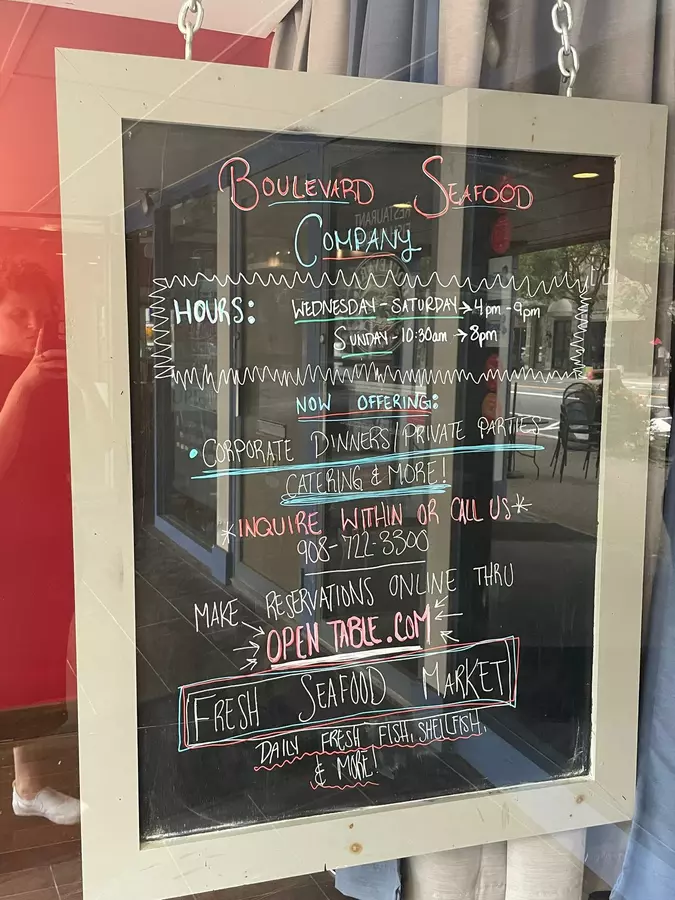 BOULEVARD SEAFOOD
COMPANY
HOURS: WEDNESDAY - SATURDAY → 4pm - 9pm
SUNDAY - 10:30am → 8pm
NOW OFFERING:
• CORPORATE DINNERS/PRIVATE PARTIES
CATERING & MORE!
*INQUIRE WITHIN OR CALL US*
908-722-3300
MAKE RESERVATIONS ONLINE THRU
OPEN TABLE.COM
FRESH SEAFOOD MARKET
DAILY FRESH FISH, SHELLFISH,
& MORE!